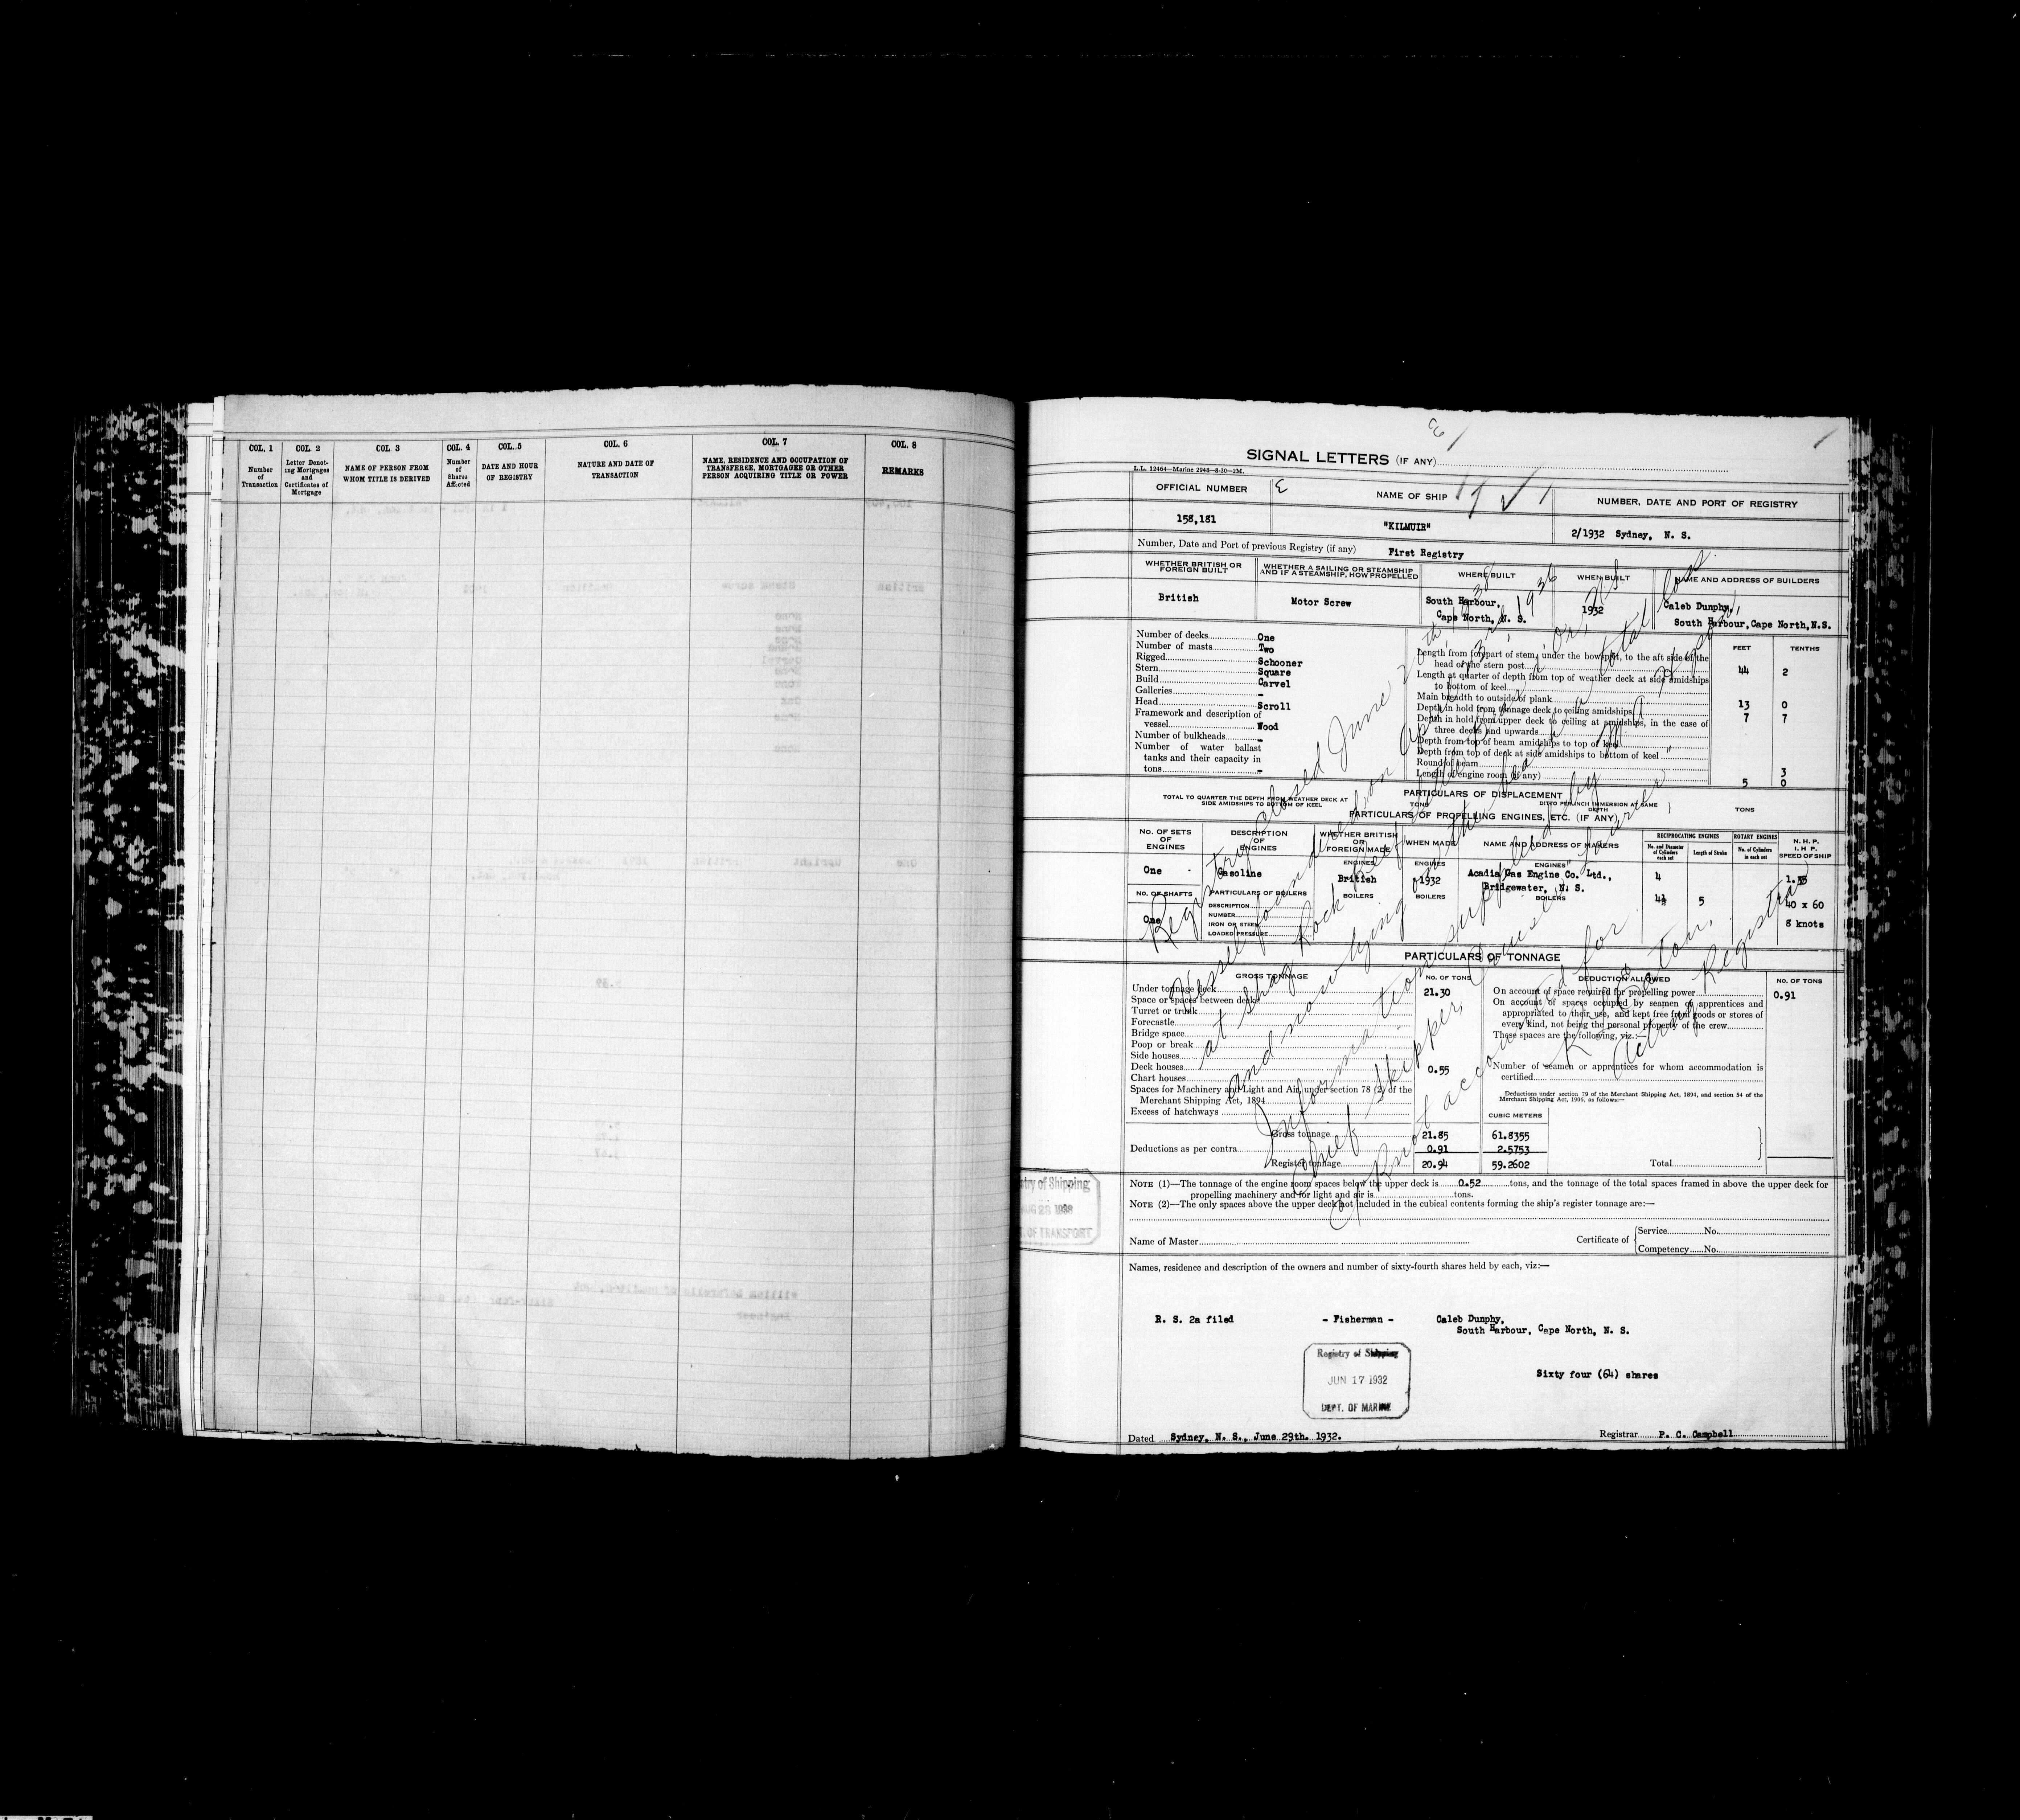 COL. 1
Number
of
Transaction
COL. 2
Letter Denot-
ing Mortgages
and
Certificates of
Mortgage
COL. 3
NAME OF PERSON FROM
WHOM TITLE IS DERIVED
COL. 4
Number
of
Shares
Affected
COL. 5
DATE AND HOUR
OF REGISTRY
COL. 6
NATURE AND DATE OF
TRANSACTION
COL. 7
NAME, RESIDENCE AND OCCUPATION OF
TRANSFEREE, MORTGAGEE OR OTHER
PERSON ACQUIRING TITLE OR POWER
COL. 8
REMARKS
SIGNAL LETTERS (IF ANY)
L.L. 12464—Marine 2948—8-30—2M.
OFFICIAL NUMBER
NAME OF SHIP
NUMBER, DATE AND PORT OF REGISTRY
158,181
"KILMUIR"
2/1932 Sydney, N. S.
Number, Date and Port of previous Registry (if any) First Registry
WHETHER BRITISH OR
FOREIGN BUILT
WHETHER A SAILING OR STEAMSHIP
AND IF A STEAMSHIP, HOW PROPELLED
WHERE BUILT
WHEN BUILT
NAME AND ADDRESS OF BUILDERS
British
Motor Screw
South Harbour,
Cape North, N. S.
1932
Caleb Dunphy,
South Harbour, Cape North, N.S.
FEET TENTHS
Number of decks One
Number of masts Two
Rigged Schooner
Stern Square
Build Carvel
Galleries -
Head Scroll
Framework and description of
vessel Wood
Number of bulkheads -
Number of water ballast
tanks and their capacity in
tons -
Length from forepart of stem, under the bowsprit, to the aft side of the
head of the stern post 44 2
Length at quarter of depth from top of weather deck at side amidships
to bottom of keel
Main breadth to outside of plank 13 0
Depth in hold from tonnage deck to ceiling amidships 7 7
Depth in hold from upper deck to ceiling at amidships, in the case of
three decks and upwards
Depth from top of beam amidships to top of keel
Depth from top of deck at side amidships to bottom of keel
Round of beam 3
Length of engine room (if any) 5 0
PARTICULARS OF DISPLACEMENT
TOTAL TO QUARTER THE DEPTH FROM WEATHER DECK AT
SIDE AMIDSHIPS TO BOTTOM OF KEEL
TONS
DITTO PER INCH IMMERSION AT SAME
DEPTH
TONS
PARTICULARS OF PROPELLING ENGINES, ETC. (IF ANY)
NO. OF SETS
OF
ENGINES
DESCRIPTION
OF
ENGINES
WHETHER BRITISH
OR
FOREIGN MADE
WHEN MADE
NAME AND ADDRESS OF MAKERS
RECIPROCATING ENGINES
No. and Diameter
of Cylinders
each set
Length of Stroke
ROTARY ENGINES
No. of Cylinders
in each set
N. H. P.
I. H. P.
SPEED OF SHIP
ENGINES
ENGINES
ENGINES
One
Gasoline
British
1932
Acadia Gas Engine Co. Ltd.,
Bridgewater, N. S.
4
5
1.35
40 x 60
8 knots
NO. OF SHAFTS
PARTICULARS OF BOILERS
BOILERS
BOILERS
BOILERS
One
DESCRIPTION
NUMBER
IRON OR STEEL
LOADED PRESSURE
PARTICULARS OF TONNAGE
GROSS TONNAGE
NO. OF TONS
DEDUCTION ALLOWED
NO. OF TONS
Under tonnage deck 21.30
Space or spaces between decks
Turret or trunk
Forecastle
Bridge space
Poop or break
Side houses
Deck houses 0.55
Chart houses
Spaces for Machinery and Light and Air, under section 78 (2) of the
Merchant Shipping Act, 1894
Excess of hatchways
Gross tonnage 21.85
Deductions as per contra 0.91
Register tonnage 20.94
On account of space required for propelling power 0.91
On account of spaces occupied by seamen or apprentices and
appropriated to their use, and kept free from goods or stores of
every kind, not being the personal property of the crew
These spaces are the following, viz.:—
Number of seamen or apprentices for whom accommodation is
certified
Deductions under section 79 of the Merchant Shipping Act, 1894, and section 54 of the
Merchant Shipping Act, 1906, as follows:—
CUBIC METERS
61.8355
2.5753
59.2602
Total
NOTE (1)—The tonnage of the engine room spaces below the upper deck is 0.52 tons, and the tonnage of the total spaces framed in above the upper deck for
propelling machinery and for light and air is tons.
NOTE (2)—The only spaces above the upper deck not included in the cubical contents forming the ship's register tonnage are:—
Name of Master
Certificate of
Service No.
Competency No.
Names, residence and description of the owners and number of sixty-fourth shares held by each, viz:—
R. S. 2a filed - Fisherman - Caleb Dunphy,
South Harbour, Cape North, N. S.
Sixty four (64) shares
Registry of Shipping
JUN 17 1932
DEPT. OF MARINE
Dated Sydney, N. S., June 29th. 1932.
Registrar P. C. Campbell
Registry closed June
Vessel foundered on
at Shag Rock Reef
and now lying on the beach a total loss.
Information supplied by
Chief Skipper
Cruiser
not accounted for
Acting Registrar
try of Shipping
AUG 23 1938
. OF TRANSPORT